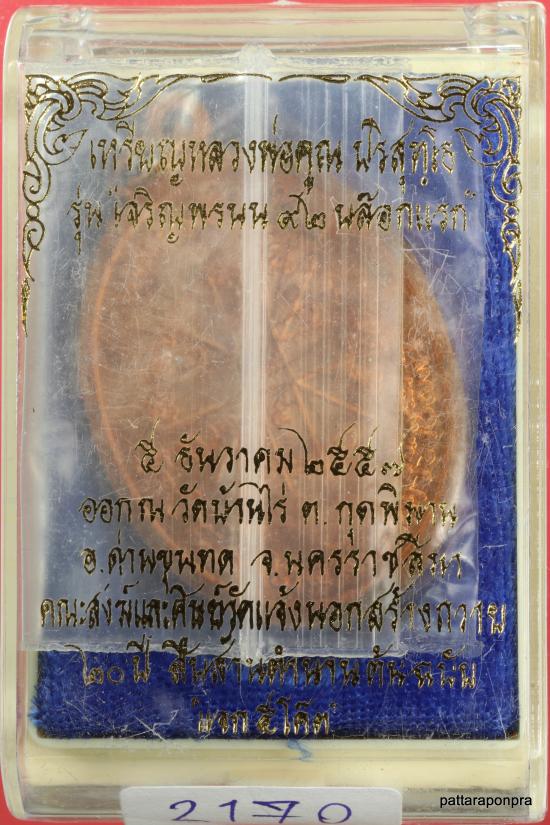 เหรียญหลวงพ่อคูณ ปริสุทฺโธ
รุ่น "เจริญพรบน ๙๒ บล๊อกแรก"
๕ ธันวาคม ๒๕๕๗
ออก ณ วัดบ้านไร่ ต.กุดพิมาน
อ.ด่านขุนทด จ.นครราชสีมา
คณะสงฆ์และศิษย์วัดแจ้งนอกสร้างถวาย
๒๐ ปี สืบสานตำนานต้นฉบับ
"แจก ๕ โค๊ต"
2170
pattaraponpra